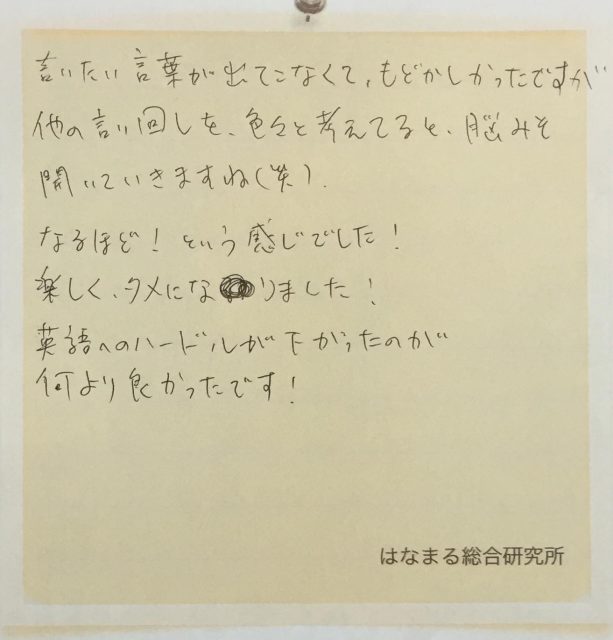 言いたい言葉が出てこなくて、もどかしかったですが
他の言い回しを、色々と考えてると、脳みそ
開いていきますね(笑).
なるほど！という感じでした！
楽しく、タメになりました！
英語へのハードルが下がったのが
何より良かったです！
はなまる総合研究所